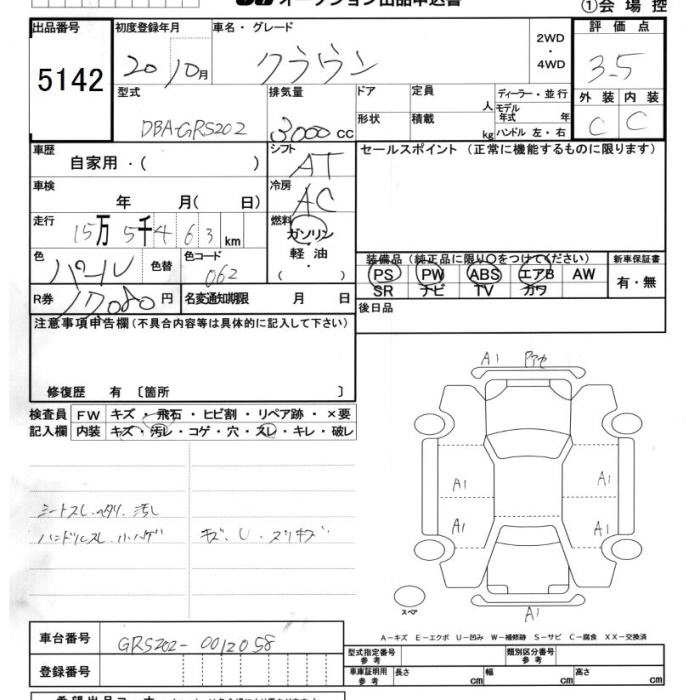 オークション出品申込書
①会場控
出品番号 初度登録年月 車名・グレード 2WD・4WD 評価点
5142 20 10月 クラウン 3.5
型式 排気量 ドア 定員 人 ディーラー・並行 外装 内装
DBA-GRS202 3000cc 形状 積載 kg モデル年式 年 ハンドル 左・右 C C
車歴 シフト セールスポイント (正常に機能するものに限ります)
自家用・( ) AT
車検 年 月( 日) 冷房 AC
走行 15万5千463km 燃料 ガソリン 軽油 ・( )
色 パール 色替 色コード 062 装備品 (純正品に限り○をつけてください) 新車保証書
PS PW ABS エアB AW 有・無
SR ナビ TV カワ
R券 17080円 名変通知期限 月 日 後日品
注意事項申告欄 (不具合内容等は具体的に記入して下さい)
修復歴 有 〔箇所 〕
検査員 FW キズ・飛石・ヒビ割・リペア跡・×要
記入欄 内装 キズ・汚レ・コゲ・穴・スレ・キレ・破レ
A1
A1 A1
A1 A1
A1
シートスレ.ヘタリ.汚レ
ハンドルスレ.小ハゲ キズ、U、スリキズ
スペア
A−キズ E−エクボ U−凹み W−補修跡 S−サビ C−腐食 XX−交換済
車台番号 GRS202-0012058
登録番号
型式指定番号 参考 類別区分番号 参考
車庫証明用 参考 長さ cm 幅 cm 高さ cm